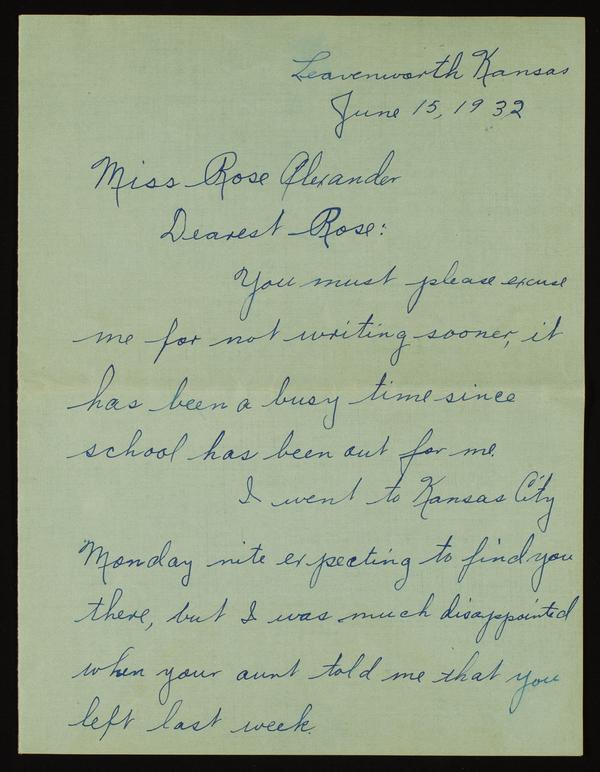 Leavenworth Kansas
June 15, 1932
Miss Rose Alexander
Dearest Rose:
You must please excuse
me for not writing sooner, it
has been a busy time since
school has been out for me.
I went to Kansas City
Monday nite expecting to find you
there, but I was much disappointed
when your aunt told me that you
left last week.